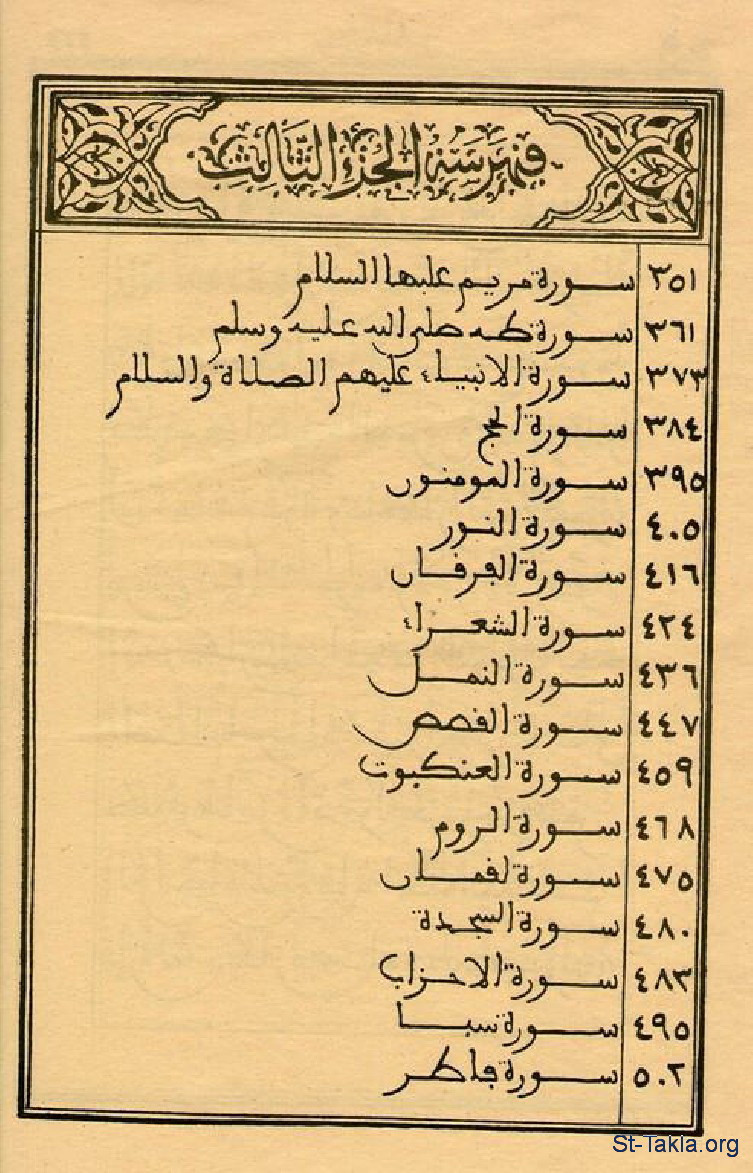 فهرسة الجزء الثالث
٣٥١ سورة مريم عليها السلام
٣٦١ سورة طه صلى الله عليه وسلم
٣٧٣ سورة الانبياء عليهم الصلاة والسلام
٣٨٤ سورة الحج
٣٩٥ سورة المومنون
٤٠٥ سورة النور
٤١٦ سورة الفرقان
٤٢٤ سورة الشعراء
٤٣٦ سورة النمل
٤٤٧ سورة القصص
٤٥٩ سورة العنكبوت
٤٦٨ سورة الروم
٤٧٥ سورة لقمان
٤٨٠ سورة السجدة
٤٨٣ سورة الاحزاب
٤٩٥ سورة سبا
٥٠٢ سورة فاطر
St-Takla.org